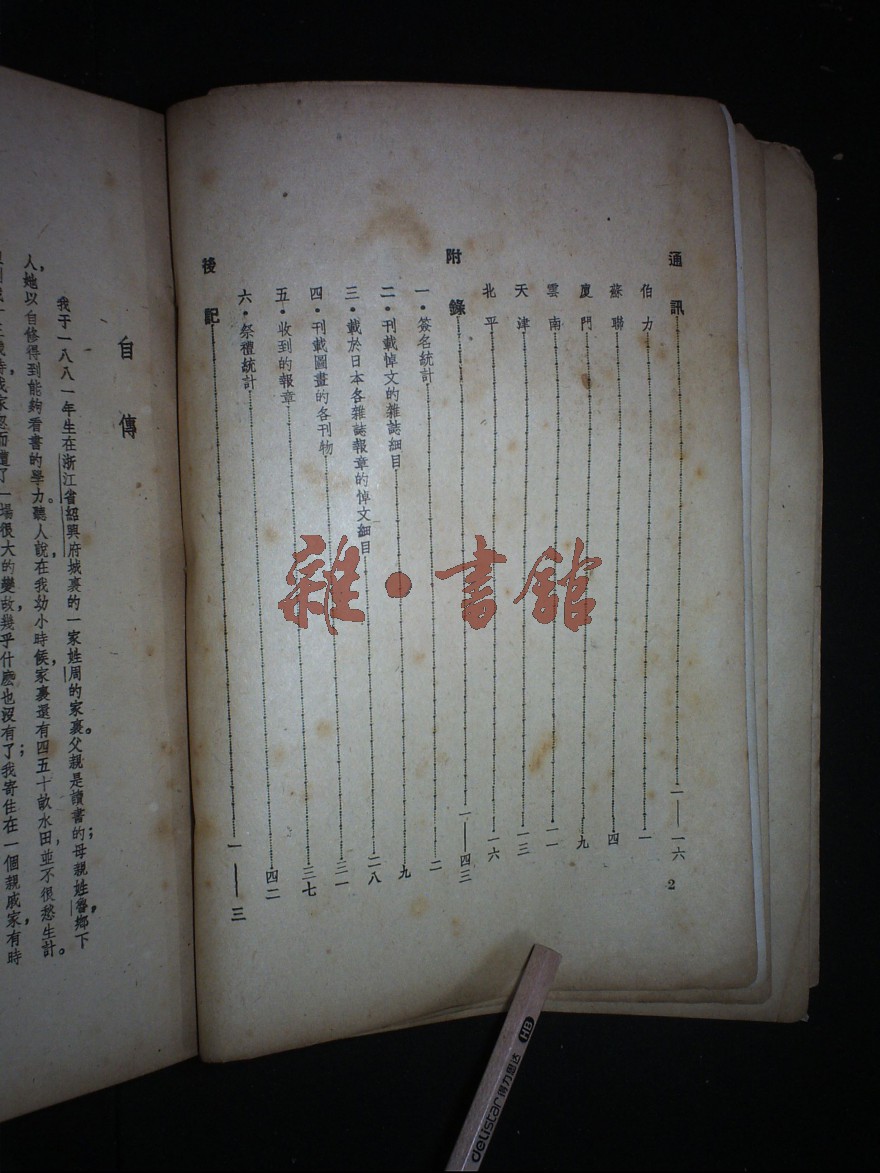 通訊 一——一六
伯力 一
蘇聯 四
廈門 九
雲南 一一
天津 一三
北平 一六
附錄 一——四三
一・簽名統計 二
二・刊載悼文的雜誌細目 九
三・載於日本各雜誌報章的悼文細目 二八
四・刊載圖畫的各刊物 三一
五・收到的報章 三七
六・祭禮統計 四二
後記 一——三
2
自傳
我于一八八一年生在浙江省紹興府城裏的一家姓周的家裏。父親是讀書的;母親姓魯,鄉下
人,她以自修得到能夠看書的學力。聽人說,在我幼小時候,家裏還有四五十畝水田,並不很愁生計。
時,我家忽而遭了一場很大的變故,幾乎什麼也沒有了;我寄住在一個親戚家,有時
雜・書館
delistar 得力思达 HB